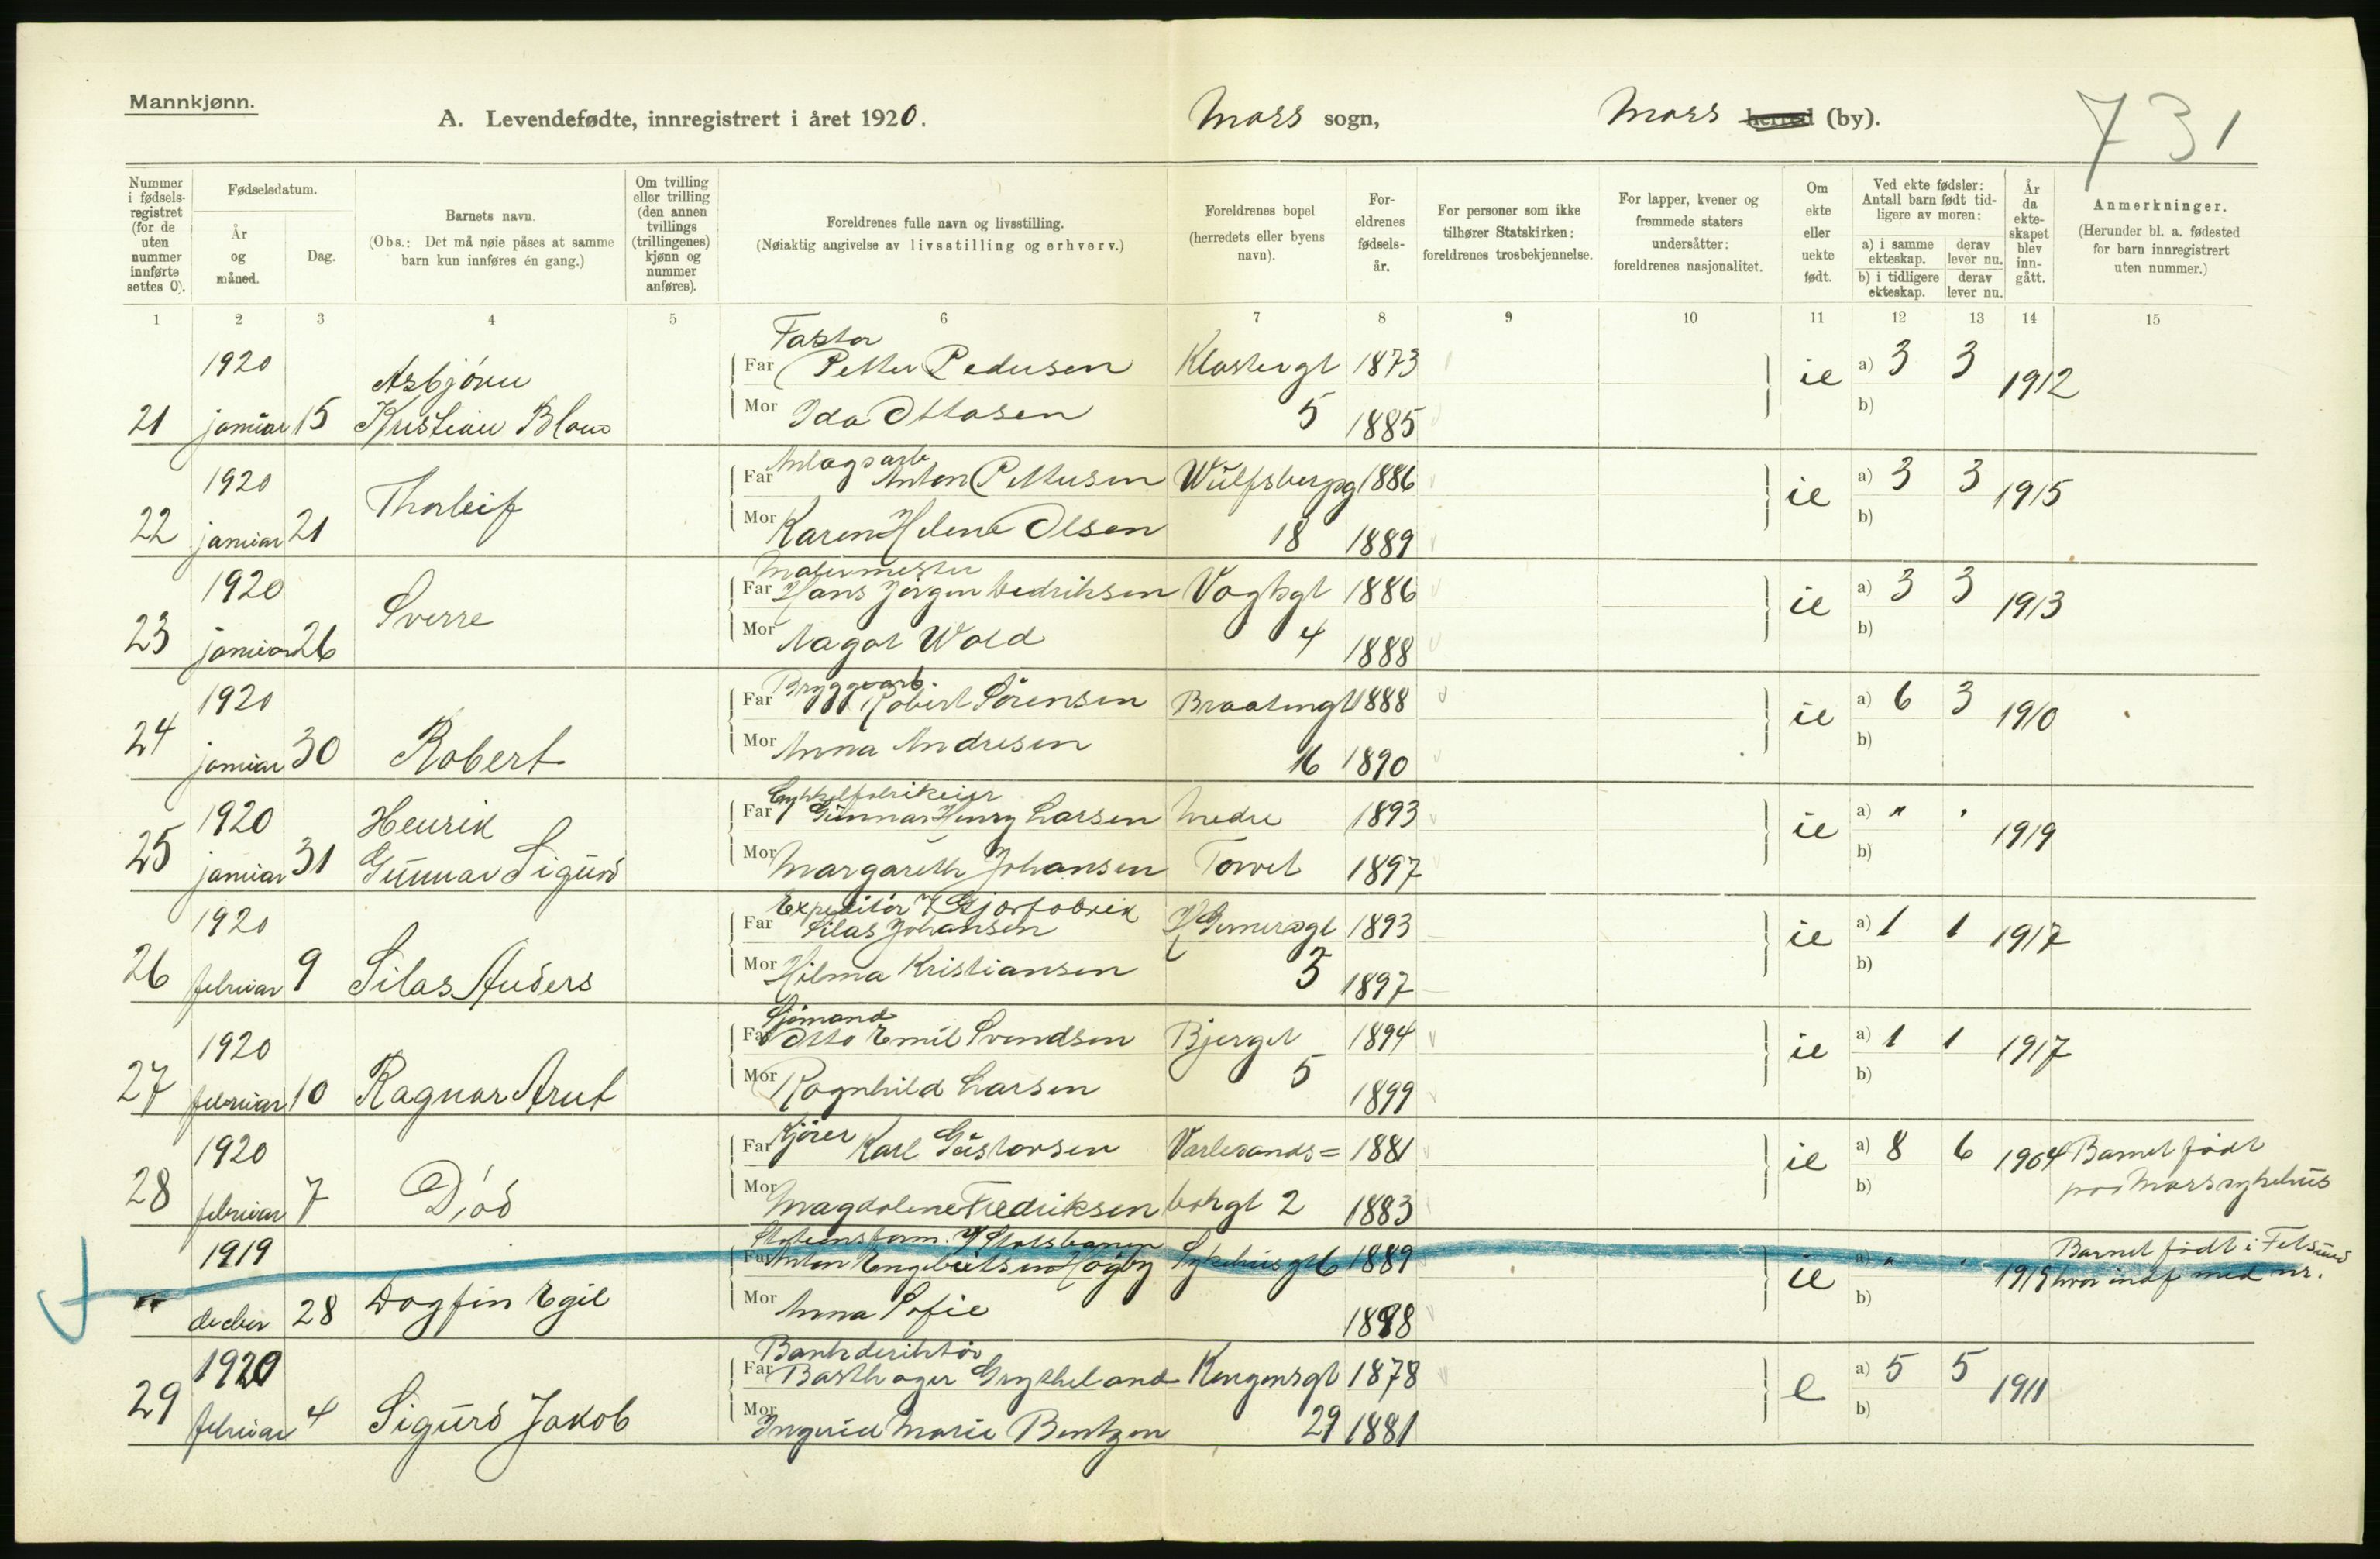 Mannkjønn.
A. Levendefødte, innregistrert i året 1920.
Moss sogn, Moss herred (by).
731
Nummer i fødselsregistret (for de uten nummer innførte settes 0).
Fødselsdatum.
År og måned.
Dag.
Barnets navn.
(Obs.: Det må nøie påses at samme barn kun innføres én gang.)
Om tvilling eller trilling (den annen tvillings (trillingenes) kjønn og nummer anføres).
Foreldrenes fulle navn og livsstilling.
(Nøiaktig angivelse av livsstilling og erhverv.)
Foreldrenes bopel (herredets eller byens navn).
Foreldrenes fødselsår.
For personer som ikke tilhører Statskirken: foreldrenes trosbekjennelse.
For lapper, kvener og fremmede staters undersåtter: foreldrenes nasjonalitet.
Om ekte eller uekte født.
Ved ekte fødsler: Antall barn født tidligere av moren:
a) i samme ekteskap. derav lever nu.
b) i tidligere ekteskap. derav lever nu.
År da ekteskapet blev inngått.
Anmerkninger.
(Herunder bl. a. fødested for barn innregistrert uten nummer.)
1 2 3 4 5 6 7 8 9 10 11 12 13 14 15
21 1920 januar 15 Asbjörn Kristian
Far Petter Pedersen Klostergt 1873
Mor Ida Ottosen 5 1885
ie a) 3 3 1912
b)
22 1920 januar 21 Thorleif
Far Anton Pettersen 1886
Mor Karen Helene Olsen 18 1889
ie a) 3 3 1915
b)
23 1920 januar 26 Sverre
Malermester
Far Hans Jörgen Vogtsgt 1886
Mor Aagot Wold 4 1888
ie a) 3 3 1913
b)
24 1920 januar 30 Robert
Bryggearb.
Far Robert Sörensen Braatengt 1888
Mor Anna Andresen 16 1890
ie a) 6 3 1910
b)
25 1920 januar 31 Henrik Gunnar Sigurd
Cykkelfabrikeier
Far Gunnar Henry Larsen Nedre 1893
Mor Margareth Johansen Torvet 1897
ie a) " " 1919
b)
26 1920 februar 9 Silas Anders
Expeditör
Far Silas Johansen 1893
Mor Hilma Kristiansen 5 1897
ie a) 1 1 1917
b)
27 1920 februar 10 Ragnar Arnt
Sjömand
Far Otto Emil Svendsen Bjerget 1894
Mor Ragnhild Larsen 5 1899
ie a) 1 1 1917
b)
28 1920 februar 7
Kjörer
Far Karl Gustavsen Varlesands= 1881
Mor Magdalene Fredriksen bakgt 2 1883
ie a) 8 6 1904 Barnet födt
b) paa Moss sykehus
" 1919 decbr 28 Dagfin Egil
Far Anton Engebretsen Högby Sykehusgt 6 1889
Mor Anna Sofie 1888
ie a) " " 1919 Barnet födt i Fetsund
b) hvor indf med nr.
29 1920 februar 4 Sigurd Jakob
Bankdirektör
Far Kongensgt 1878
Mor Ingrid Marie Bentzen 29 1881
e a) 5 5 1911
b)